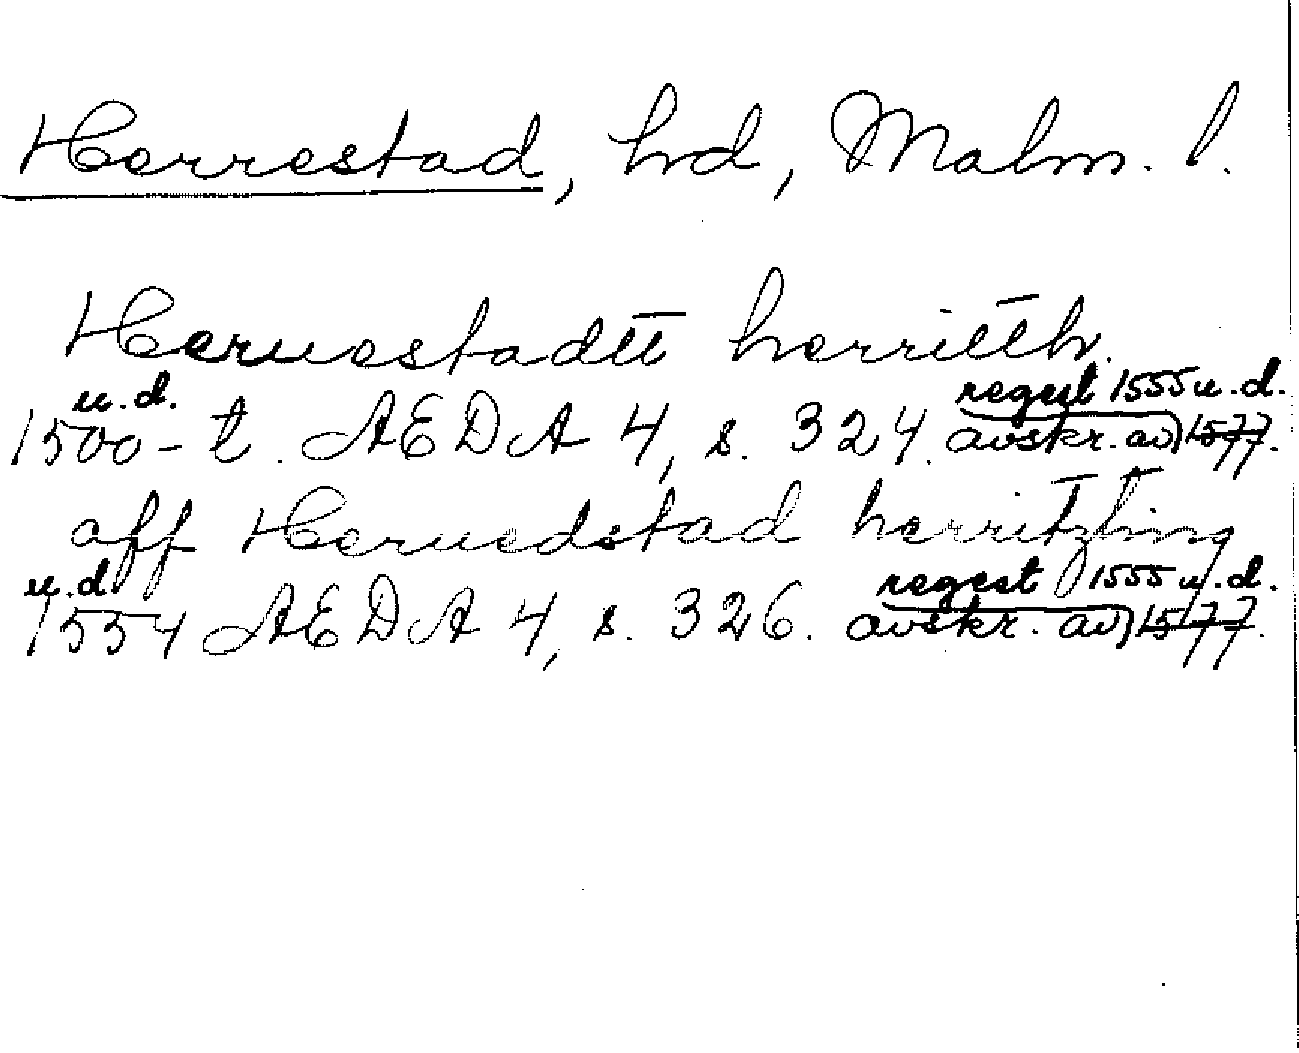 Herrestad, hd, Malm. l.
Heruestadtt herritth.
u.d. regest 1555 u.d.
1500-t. AEDA 4, s. 324. avskr. av 1577.
aff Heruedstad herritzting
u.d. regest 1555 u.d.
1554 AEDA 4, s. 326. avskr. av 1577.